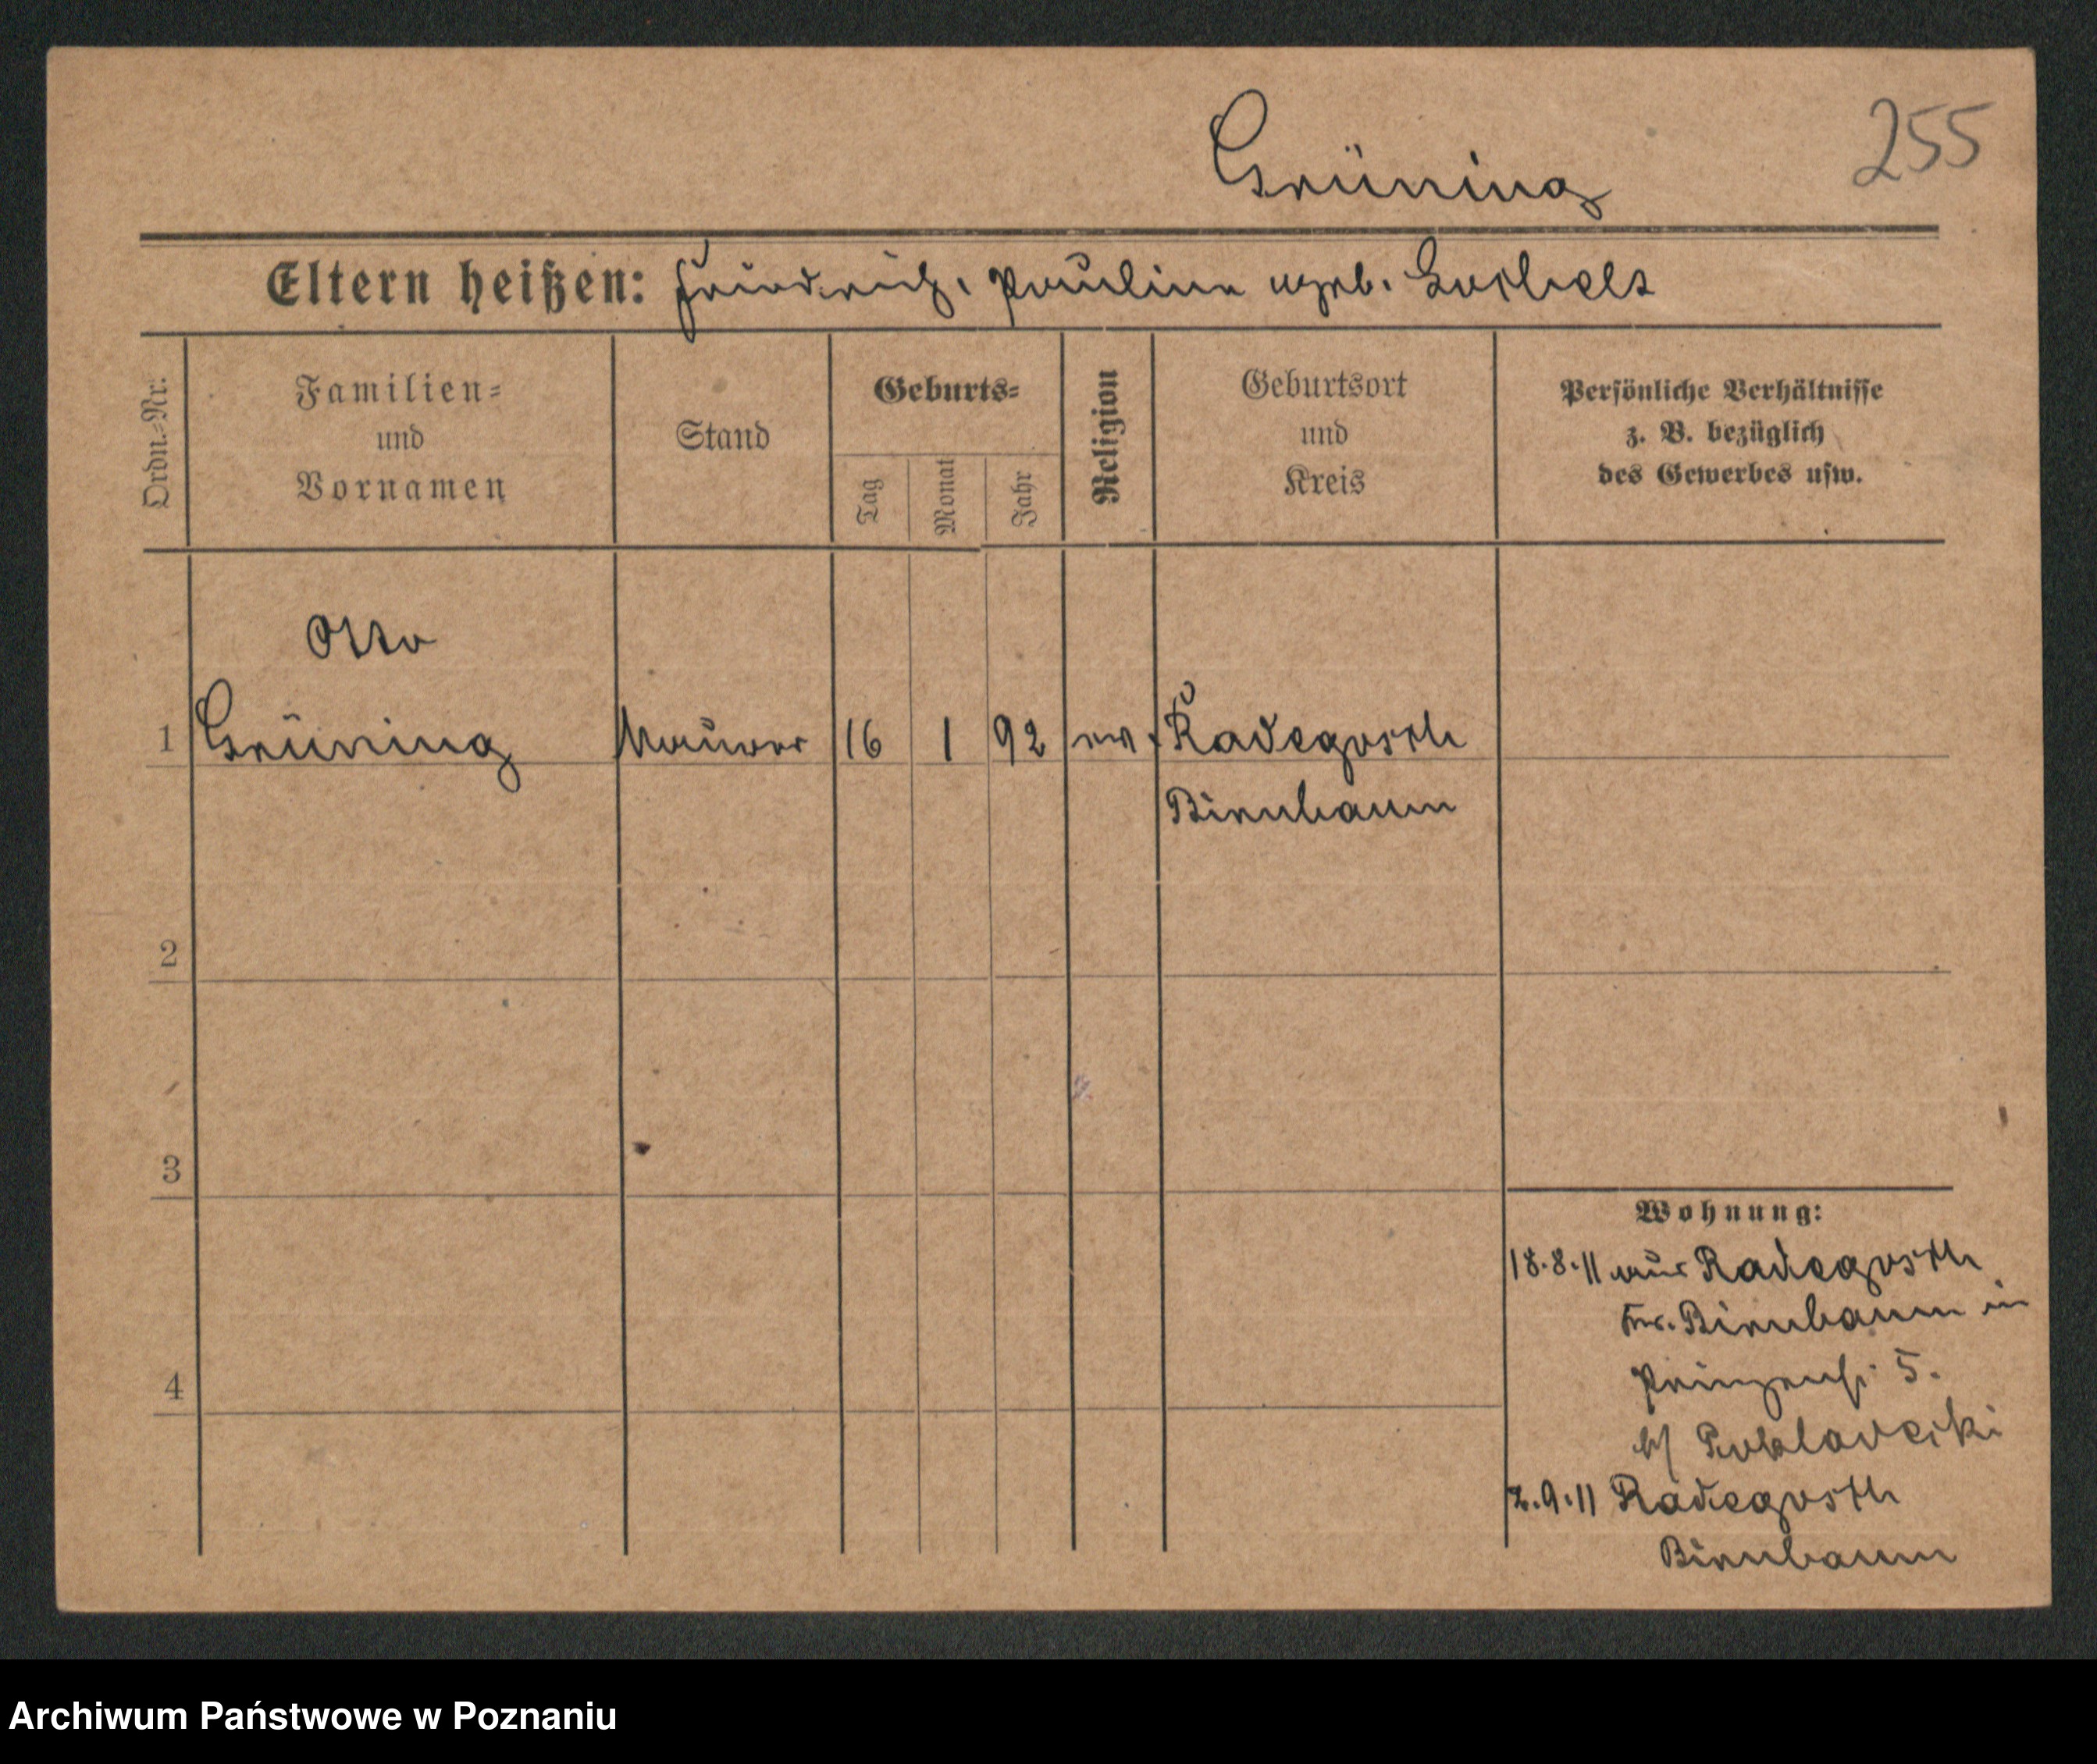 Grüning
255
Eltern heißen: Friedrich, Pauline geb.
Ordn.-Nr.
Familien=
und
Vornamen
Stand
Geburts=
Tag
Monat
Jahr
Religion
Geburtsort
und
Kreis
Persönliche Verhältnisse
z. B. bezüglich
des Gewerbes usw.
Otto
1 Grüning Maurer 16 1 92 ev. Radegosch
Birnbaum
2
3
4
Wohnung:
18.8.11 aus Radegosch
Kr. Birnbaum in
Prinzenstr. 5.
b/
2.9.11 Radegosch
Birnbaum
Archiwum Państwowe w Poznaniu